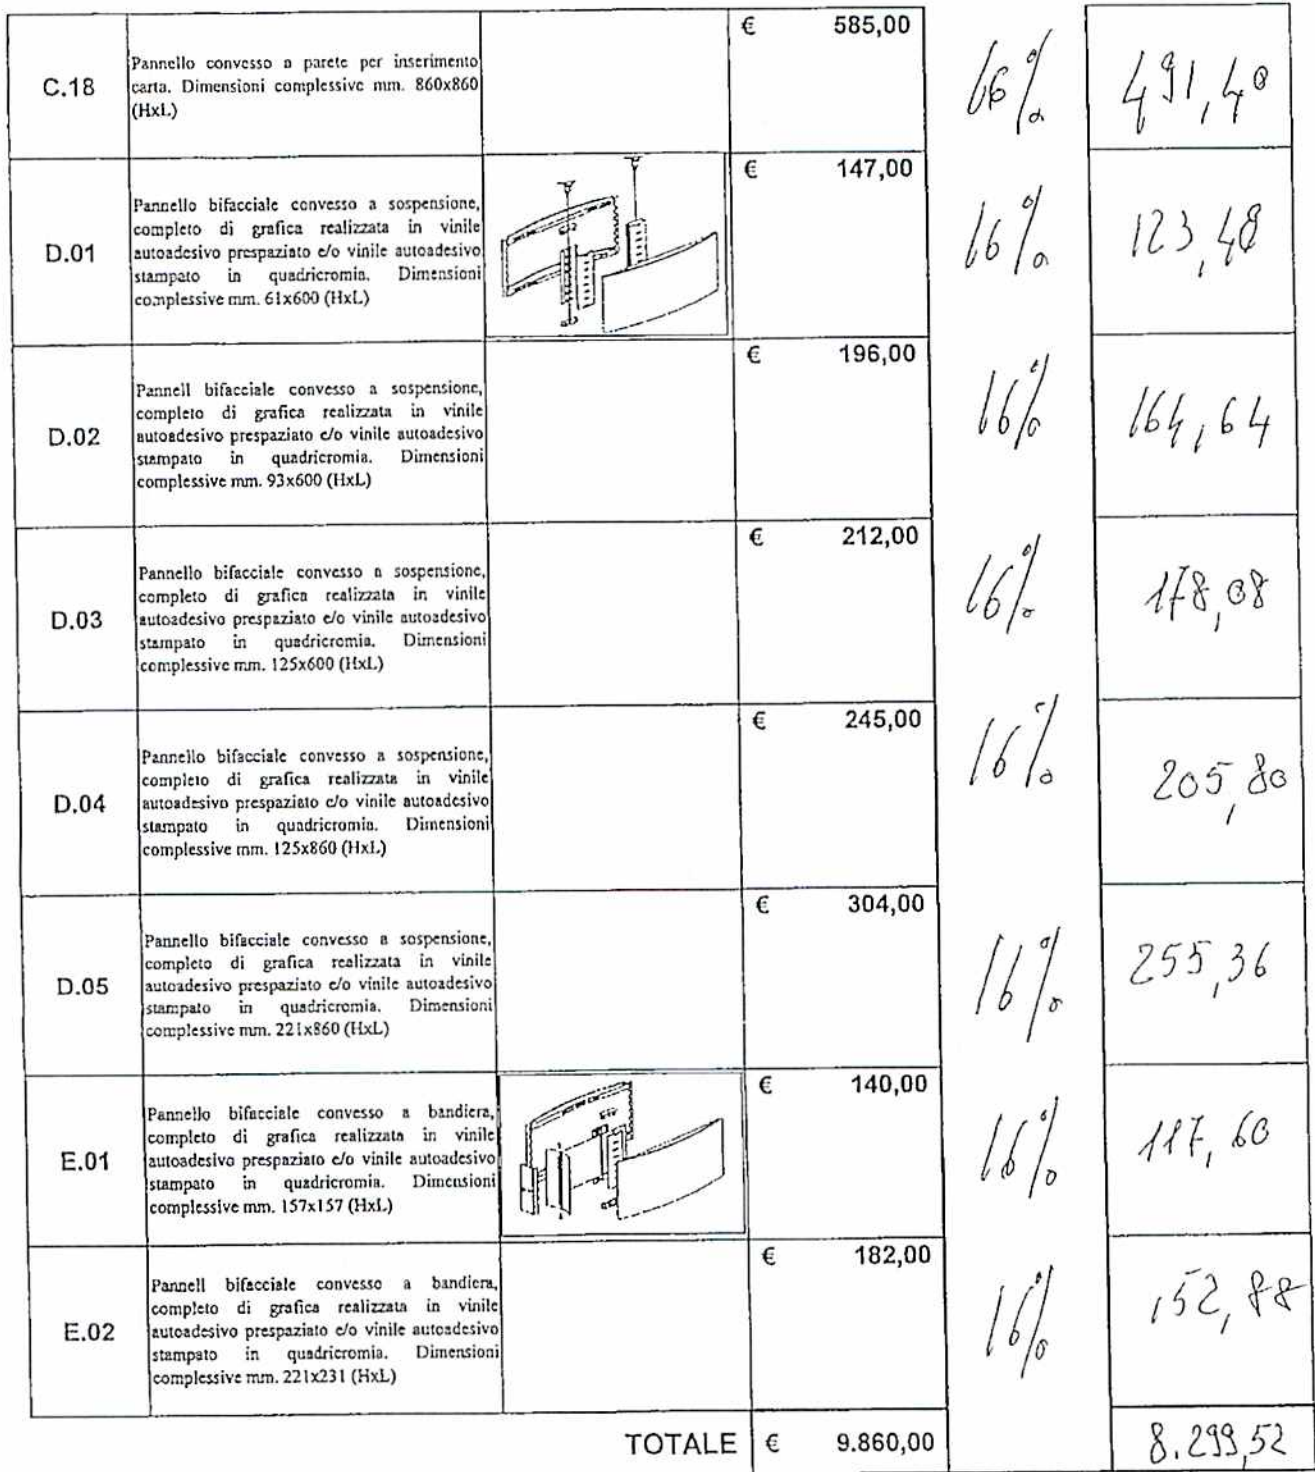 € 585,00
C.18
Pannello convesso a parete per inserimento
carta. Dimensioni complessive mm. 860x860
(HxL)
16% 491,40
€ 147,00
D.01
Pannello bifacciale convesso a sospensione,
completo di grafica realizzata in vinile
autoadesivo prespaziato e/o vinile autoadesivo
stampato in quadricromia. Dimensioni
complessive mm. 61x600 (HxL)
16% 123,48
€ 196,00
D.02
Pannell bifacciale convesso a sospensione,
completo di grafica realizzata in vinile
autoadesivo prespaziato e/o vinile autoadesivo
stampato in quadricromia. Dimensioni
complessive mm. 93x600 (HxL)
16% 164,64
€ 212,00
D.03
Pannello bifacciale convesso a sospensione,
completo di grafica realizzata in vinile
autoadesivo prespaziato e/o vinile autoadesivo
stampato in quadricromia. Dimensioni
complessive mm. 125x600 (HxL)
16% 178,08
€ 245,00
D.04
Pannello bifacciale convesso a sospensione,
completo di grafica realizzata in vinile
autoadesivo prespaziato e/o vinile autoadesivo
stampato in quadricromia. Dimensioni
complessive mm. 125x860 (HxL)
16% 205,80
€ 304,00
D.05
Pannello bifacciale convesso a sospensione,
completo di grafica realizzata in vinile
autoadesivo prespaziato e/o vinile autoadesivo
stampato in quadricromia. Dimensioni
complessive mm. 221x860 (HxL)
16% 255,36
€ 140,00
E.01
Pannello bifacciale convesso a bandiera,
completo di grafica realizzata in vinile
autoadesivo prespaziato e/o vinile autoadesivo
stampato in quadricromia. Dimensioni
complessive mm. 157x157 (HxL)
16% 117,60
€ 182,00
E.02
Pannell bifacciale convesso a bandiera,
completo di grafica realizzata in vinile
autoadesivo prespaziato e/o vinile autoadesivo
stampato in quadricromia. Dimensioni
complessive mm. 221x231 (HxL)
16% 152,88
TOTALE € 9.860,00 8.299,52